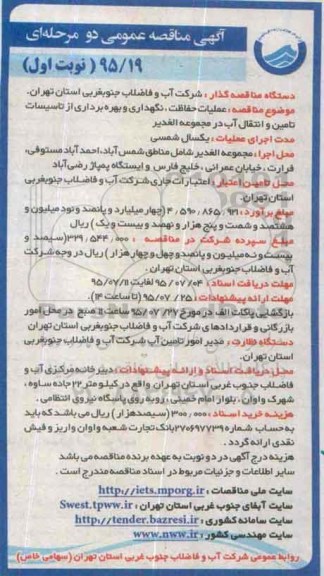 آگهی مناقصه عمومی دو مرحله‌ای
۹۵/۱۹ (نوبت اول)
دستگاه مناقصه گذار : شرکت آب و فاضلاب جنوبغربی استان تهران.
موضوع مناقصه : عملیات حفاظت ، نگهداری و بهره برداری از تاسیسات
تامین و انتقال آب در مجموعه الغدیر
مدت اجرای عملیات : یکسال شمسی
محل اجرا : مجموعه الغدیر شامل مناطق شمس آباد، احمد آباد مستوفی،
فرارت ، خیابان عمرانی ، خلیج فارس و ایستگاه پمپاژ رضی آباد
محل تامین اعتبار : اعتبارات جاری شرکت آب و فاضلاب جنوبغربی
استان تهران.
مبلغ برآورد : ۴/۵۹۰/۸۶۵/۹۲۱ (چهار میلیارد و پانصد و نود میلیون و
هشتصد و شصت و پنج هزار و نهصد و بیست و یک) ریال
مبلغ سپرده شرکت در مناقصه : ۳۲۹/۵۴۴/۰۰۰ (سیصد و
بیست و نه میلیون و پانصد و چهل و چهار هزار) ریال در وجه شرکت
آب و فاضلاب جنوبغربی استان تهران .
مهلت دریافت اسناد : ۹۵/۰۷/۰۴ لغایت ۹۵/۰۷/۱۱
مهلت ارائه پیشنهادات : ۹۵/۰۷/۲۵ (تا ساعت ۱۴)
بازگشایی پاکات الف در مورخ ۹۵/۰۷/۲۷ ساعت ۱۱ صبح در محل امور
بازرگانی و قراردادهای شرکت آب و فاضلاب جنوبغربی استان تهران
دستگاه نظارت : مدیر امور تامین آب شرکت آب و فاضلاب جنوبغربی
استان تهران.
محل دریافت اسناد و ارائه پیشنهادات : دبیرخانه مرکزی آب و
فاضلاب جنوب غربی استان تهران واقع در کیلومتر ۲۲ جاده ساوه ،
شهرک واوان ، بلوار امام خمینی ، روبه روی پاسگاه نیروی انتظامی .
هزینه خرید اسناد : ۳۰۰/۰۰۰ (سیصدهزار) ریال می باشد که باید
به حساب شماره ۲۷۰۶۹۷۷۳۹ بانک تجارت شعبه واوان واریز و فیش
نقدی ارائه گردد .
هزینه درج آگهی در دو نوبت به عهده برنده مناقصه می باشد
سایر اطلاعات و جزئیات مربوط در اسناد مناقصه مندرج است .
سایت ملی مناقصات : http://iets.mporg.ir
سایت آبفای جنوب غربی استان تهران : Swest.tpww.ir
سایت سامانه کشوری : http://tender.bazresi.ir
سایت مهندسی کشور : www.nww.ir
روابط عمومی شرکت آب و فاضلاب جنوب غربی استان تهران (سهامی خاص)